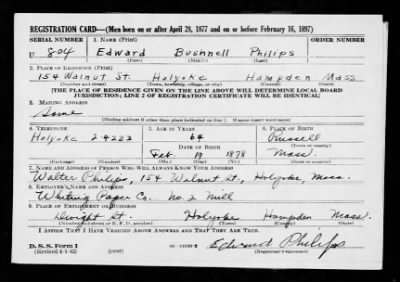 REGISTRATION CARD—(Men born on or after April 28, 1877 and on or before February 16, 1897)
SERIAL NUMBER 1. NAME (Print) ORDER NUMBER
U 804 Edward Bushnell Philips
(First) (Middle) (Last)
2. PLACE OF RESIDENCE (Print)
154 Walnut St. Holyoke Hampden Mass
(Number and street) (Town, township, village, or city) (County) (State)
[THE PLACE OF RESIDENCE GIVEN ON THE LINE ABOVE WILL DETERMINE LOCAL BOARD
JURISDICTION; LINE 2 OF REGISTRATION CERTIFICATE WILL BE IDENTICAL]
3. MAILING ADDRESS
Same
[Mailing address if other than place indicated on line 2. If same insert word same]
4. TELEPHONE 5. AGE IN YEARS 6. PLACE OF BIRTH
64 Russell
Holyoke 2-4233 DATE OF BIRTH (Town or county)
Feb. 19 1878 Mass.
(Exchange) (Number) (Mo.) (Day) (Yr.) (State or country)
7. NAME AND ADDRESS OF PERSON WHO WILL ALWAYS KNOW YOUR ADDRESS
Walter Philips, 154 Walnut St., Holyoke, Mass.
8. EMPLOYER'S NAME AND ADDRESS
Whiting Paper Co. No. 2 Mill
9. PLACE OF EMPLOYMENT OR BUSINESS
Dwight St. Holyoke Hampden Mass.
(Number and street or R. F. D. number) (Town) (County) (State)
I AFFIRM THAT I HAVE VERIFIED ABOVE ANSWERS AND THAT THEY ARE TRUE.
D. S. S. Form 1
(Revised 4-1-42) (over) Edward Philips
(Registrant's signature)